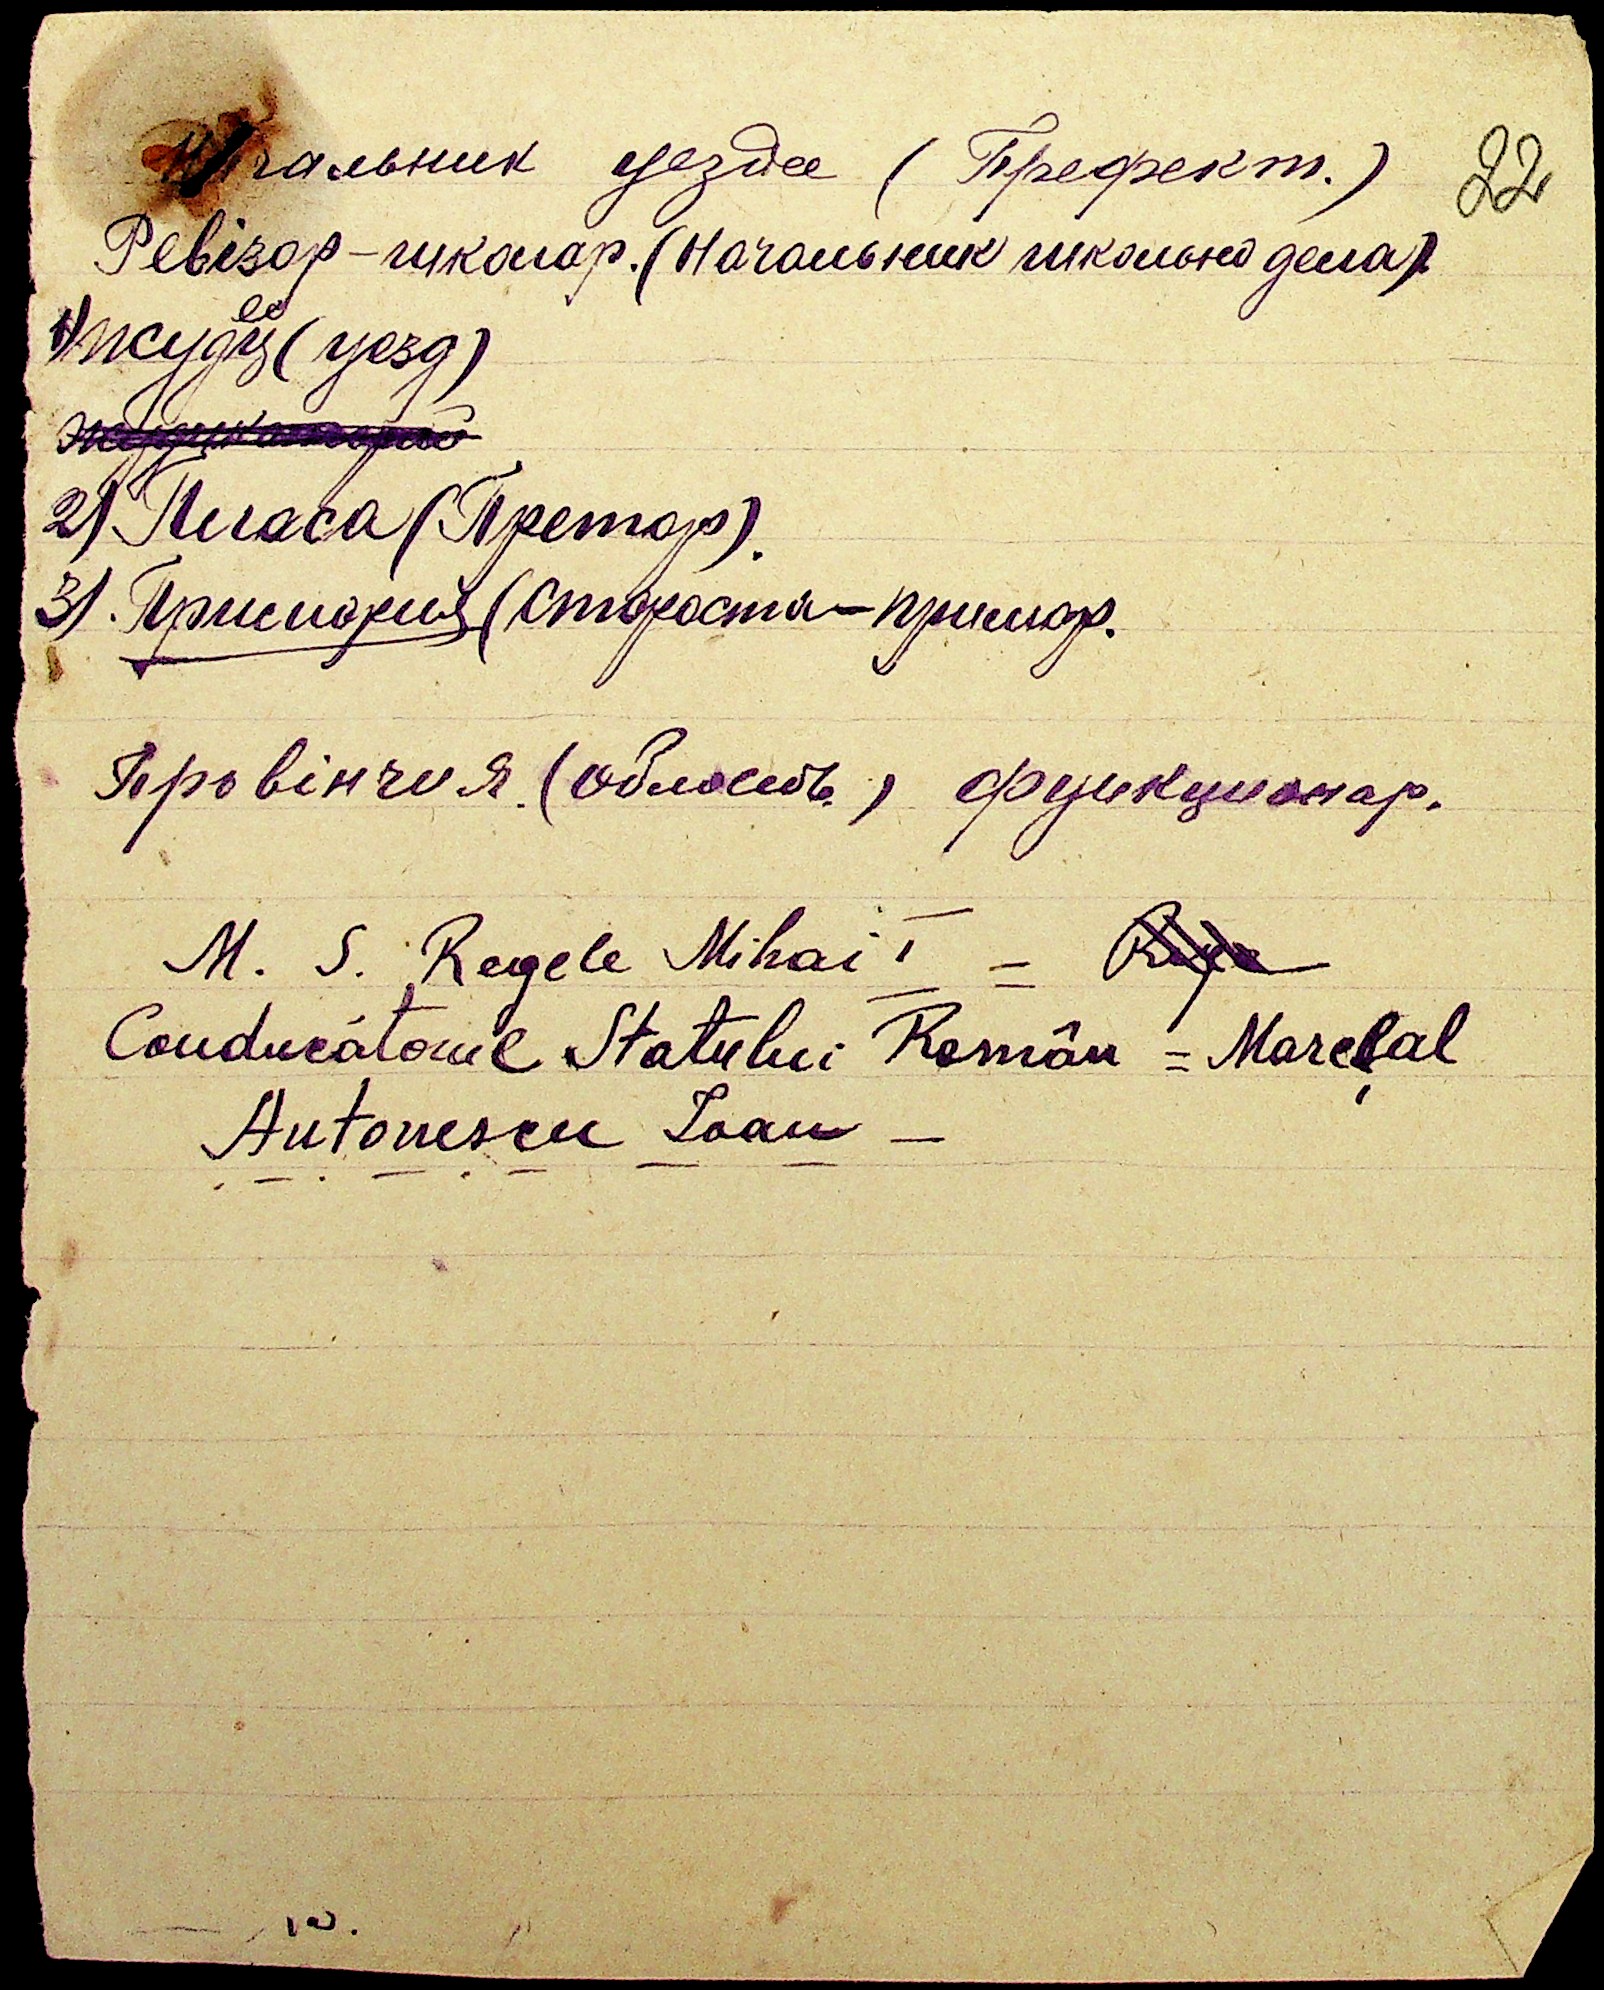 Начальник уезда (Префект.) 22
Ревізор-школар. (Начальник школьно дела)
1) Жудец (уезд)
2) Пласа (Претор).
3). Примария (Староста-примар.
Провінчия. (область.) функционар.
M. S. Regele Mihai I =
Conducătorul Statului Român = Mareșal
Antonescu Ioan –